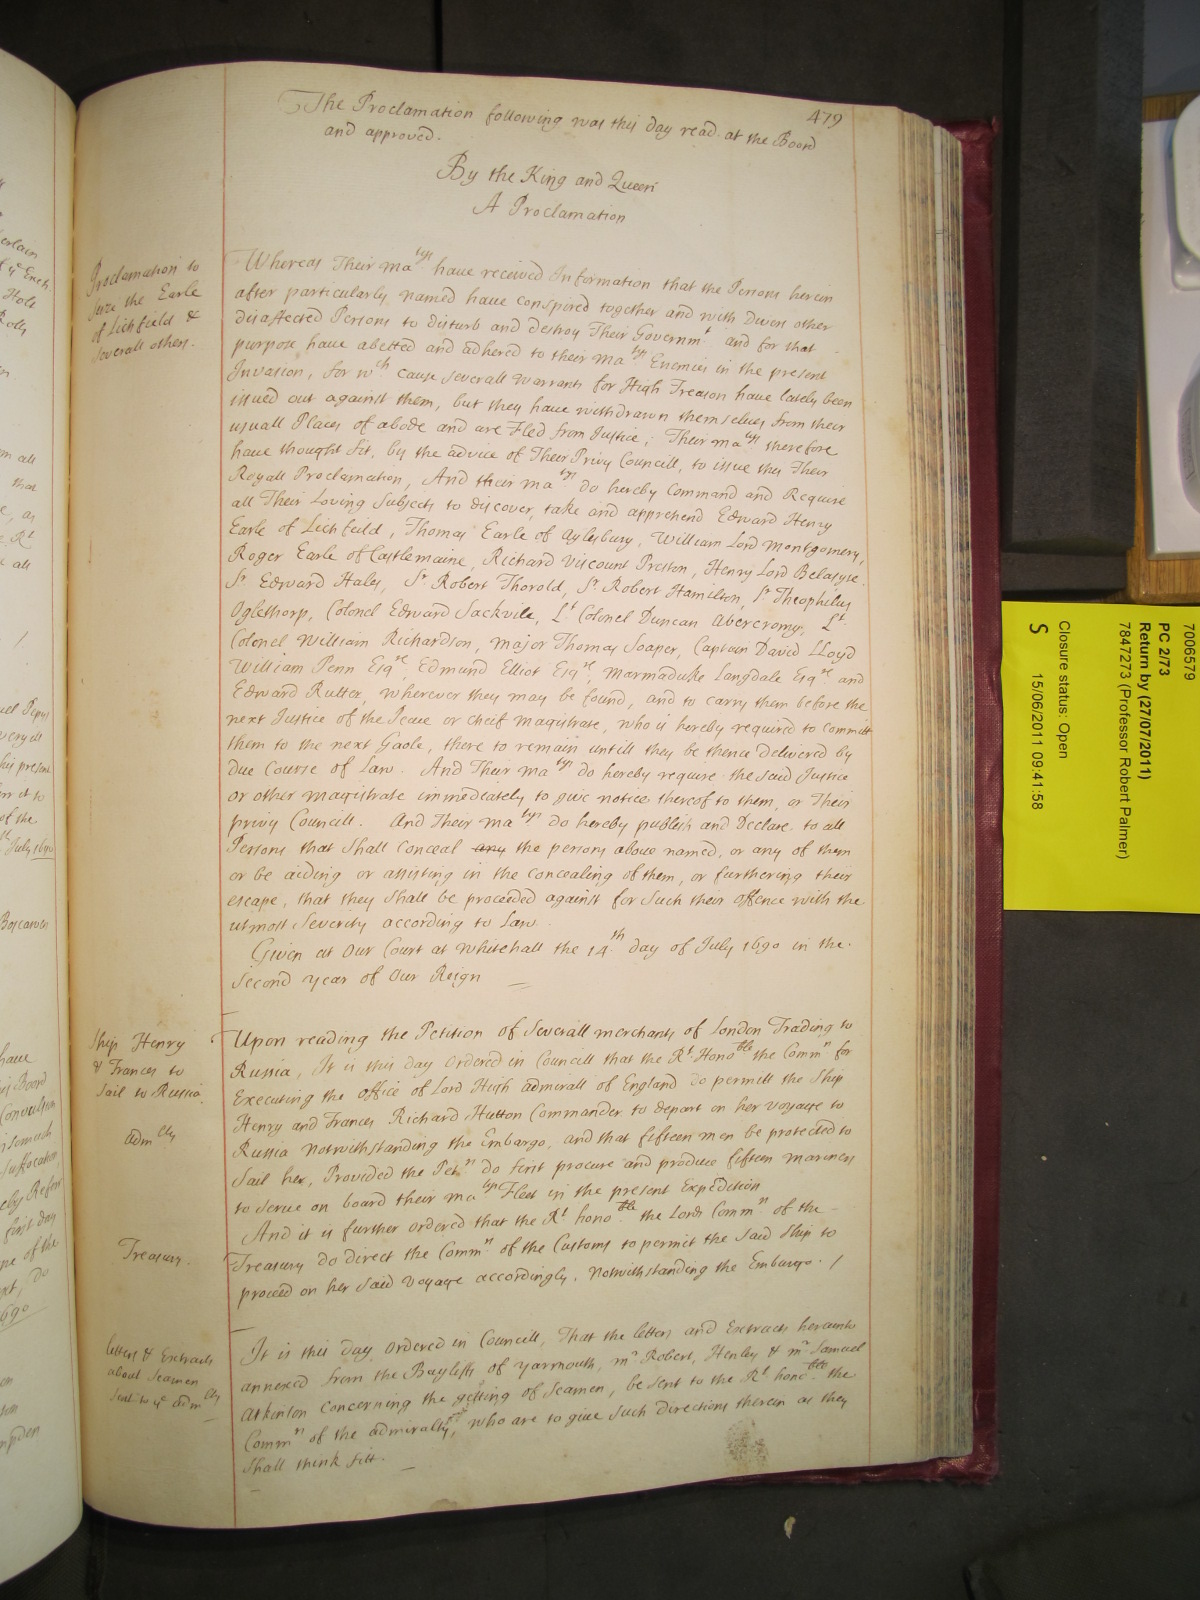 479
The Proclamation following was this day read at the Board
and approved.
By the King and Queen
A Proclamation
Proclamation to
seize the Earle
of Lichfield &
severall others.
Whereas Their Ma.tys have received Information that the Persons herein
after particularly named have conspired together and with Divers other
disaffected Persons to disturb and destroy Their Governm.t and for that
purpose have abetted and adhered to their Ma.tys Enemies in the present
Invasion, for w.ch cause severall warrants for High Treason have lately been
issued out against them, but they have withdrawn themselves from their
usuall Places of abode and are Fled from Justice; Their Ma.tys therefore
have thought fit, by the advice of Their Privy Councill, to issue this Their
Royall Proclamation, And their Ma.tys do hereby Command and Require
all Their Loving Subjects to discover, take and apprehend Edward Henry
Earle of Lichfeild, Thomas Earle of Aylesbury, William Lord Montgomery,
Roger Earle of Castlemaine, Richard Viscount Preston, Henry Lord Belasyse.
S.r Edward Hales, S.r Robert Thorold, S.r Robert Hamilton, S.r Theophilus
Oglethorp, Colonel Edward Sackvile, L.t Colonel Duncan Abercromy, L.t
Colonel William Richardson, Major Thomas Soaper, Captain David Lloyd
William Penn Esq.re, Edmund Elliot Esq.re, Marmaduke Langdale Esq.re and
Edward Rutter, wherever they may be found, and to carry them before the
next Justice of the Peace or cheif Magistrate, who is hereby required to committ
them to the next Gaole, there to remain untill they be thence delivered by
due Course of Law. And Their Ma.tys do hereby require the said Justice
or other Magistrate immediately to give notice thereof to them, or Their
privy Councill. And Their Ma.tys do hereby publish and Declare to all
Persons that shall conceal any the persons above named, or any of them
or be aiding or assisting in the concealing of them, or furthering their
escape, that they shall be proceeded against for such their offence with the
utmost severity according to Law.
Given at Our Court at Whitehall the 14.th day of July 1690 in the
second year of Our Reign
Ship Henry
& Frances to
sail to Russia.
Adm.lty
Upon reading the Petition of Severall merchants of London Trading to
Russia, It is this day Ordered in Councill that the R.t Hono.ble the Comm.rs for
Executing the office of Lord High Admirall of England do permitt the Ship
Henry and Frances Richard Hutton Commander to depart on her voyage to
Russia notwithstanding the Embargo, and that fifteen men be protected to
sail her, Provided the Pet.rs do first procure and produce fifteen mariners
to serve on board their Ma.tys Fleet in the present Expedition
Treasury.
And it is further ordered that the R.t hono.ble the Lords Comm.rs of the
Treasury do direct the Comm.rs of the Customs to permit the said Ship to
proceed on her said voyage accordingly, notwithstanding the Embargo. /
letters & Extracts
about Seamen
sent to y.e Adm.lty
It is this day ordered in Councill, That the letters and Extracts hereunto
annexed from the Bayliffs of Yarmouth, m.r Robert, Henley & m.r Samuel
Atkinson concerning the getting of Seamen, be sent to the R.t hono.ble the
Comm.rs of the Admiralty, who are to give such directions therein as they
shall think fitt.
7006579
PC 2/73
Return by (27/07/2011)
7847273 (Professor Robert Palmer)
Closure status: Open
S 15/06/2011 09:41:58